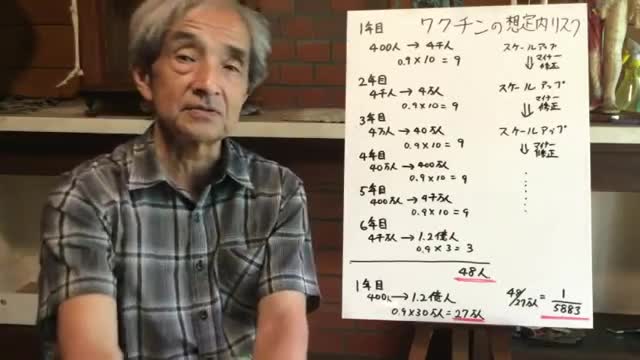 ワクチンの想定内リスク
1年目
400人 → 4千人 スケールアップ
0.9×10 = 9 ⇓ マイナー修正
2年目
4千人 → 4万人 スケールアップ
0.9×10 = 9 ⇓ マイナー修正
3年目
4万人 → 40万人 スケールアップ
0.9×10 = 9 ⇓ マイナー修正
4年目
40万人 → 400万人
0.9×10 = 9
5年目
400万人 → 4千万人
0.9×10 = 9
6年目
4千万人 → 1.2億人
0.9×3 = 3
48人
1年目
400人 → 1.2億人
0.9×30万人 = 27万人
48/27万人 = 1/5883